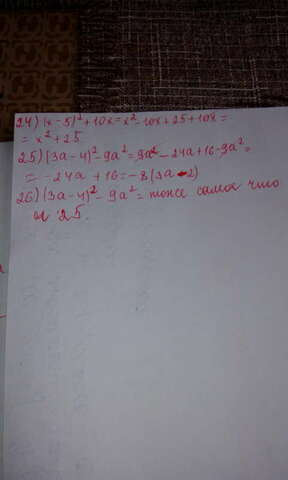 24) (x-5)²+10x=x²-10x+25+10x=
= x²+25
25) (3a-4)²-9a²=9a²-24a+16-9a²=
= -24a+16=-8(3a-2)
26) (3a-4)²-9a²= тоже самое что
и 25.